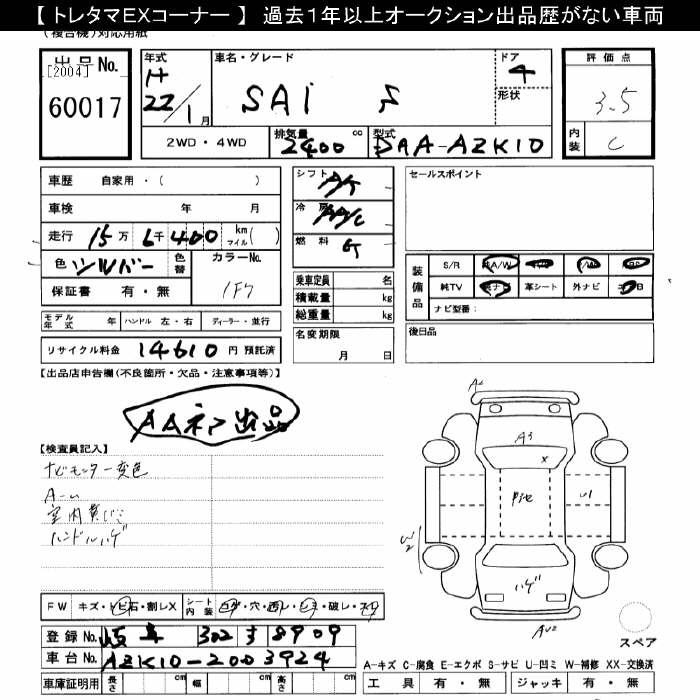 【 トレタマEXコーナー 】 過去1年以上オークション出品歴がない車両
(複合機)対応用紙
出品No.
[2004]
60017
年式
H
22/1月
車名・グレード
SAI S
ドア
4
形状
評価点
3.5
内装
C
2WD・4WD
排気量
2400
cc
型式
DAA-AZK10
車歴 自家用・( )
車検 年 月
走行 15万 6千 400 km マイル( )
色 シルバー 色替
カラーNo.
1F7
保証書 有・無
シフト
A/T
冷房
AA/C
燃料
G
乗車定員 名
積載量 kg
総重量 kg
セールスポイント
装備品
S/R
純TV
革シート
外ナビ
ナビ型番:
モデル年式 年
ハンドル 左・右
ディーラー・並行
リサイクル料金 14610 円 預託済
名変期限
月 日
後日品
【出品店申告欄(不良箇所・欠品・注意事項等)】
AAネット出品
【検査員記入】
ナビモニター変色
A-U
ハンドルハゲ
A2
A3
X
U1
W2
ハゲ
AU2
FW キズ・トビ石・割レX
シート内装 コゲ・穴・切レ・シミ・破レ・スレ
登録No. 岐阜 302 す 8909
車台No. AZK10-2003924
車庫証明用 長さ cm 幅 cm 高さ cm
スペア
A-キズ C-腐食 E-エクボ S-サビ U-凹ミ W-補修 XX-交換済
工具 有・無 ジャッキ 有・無